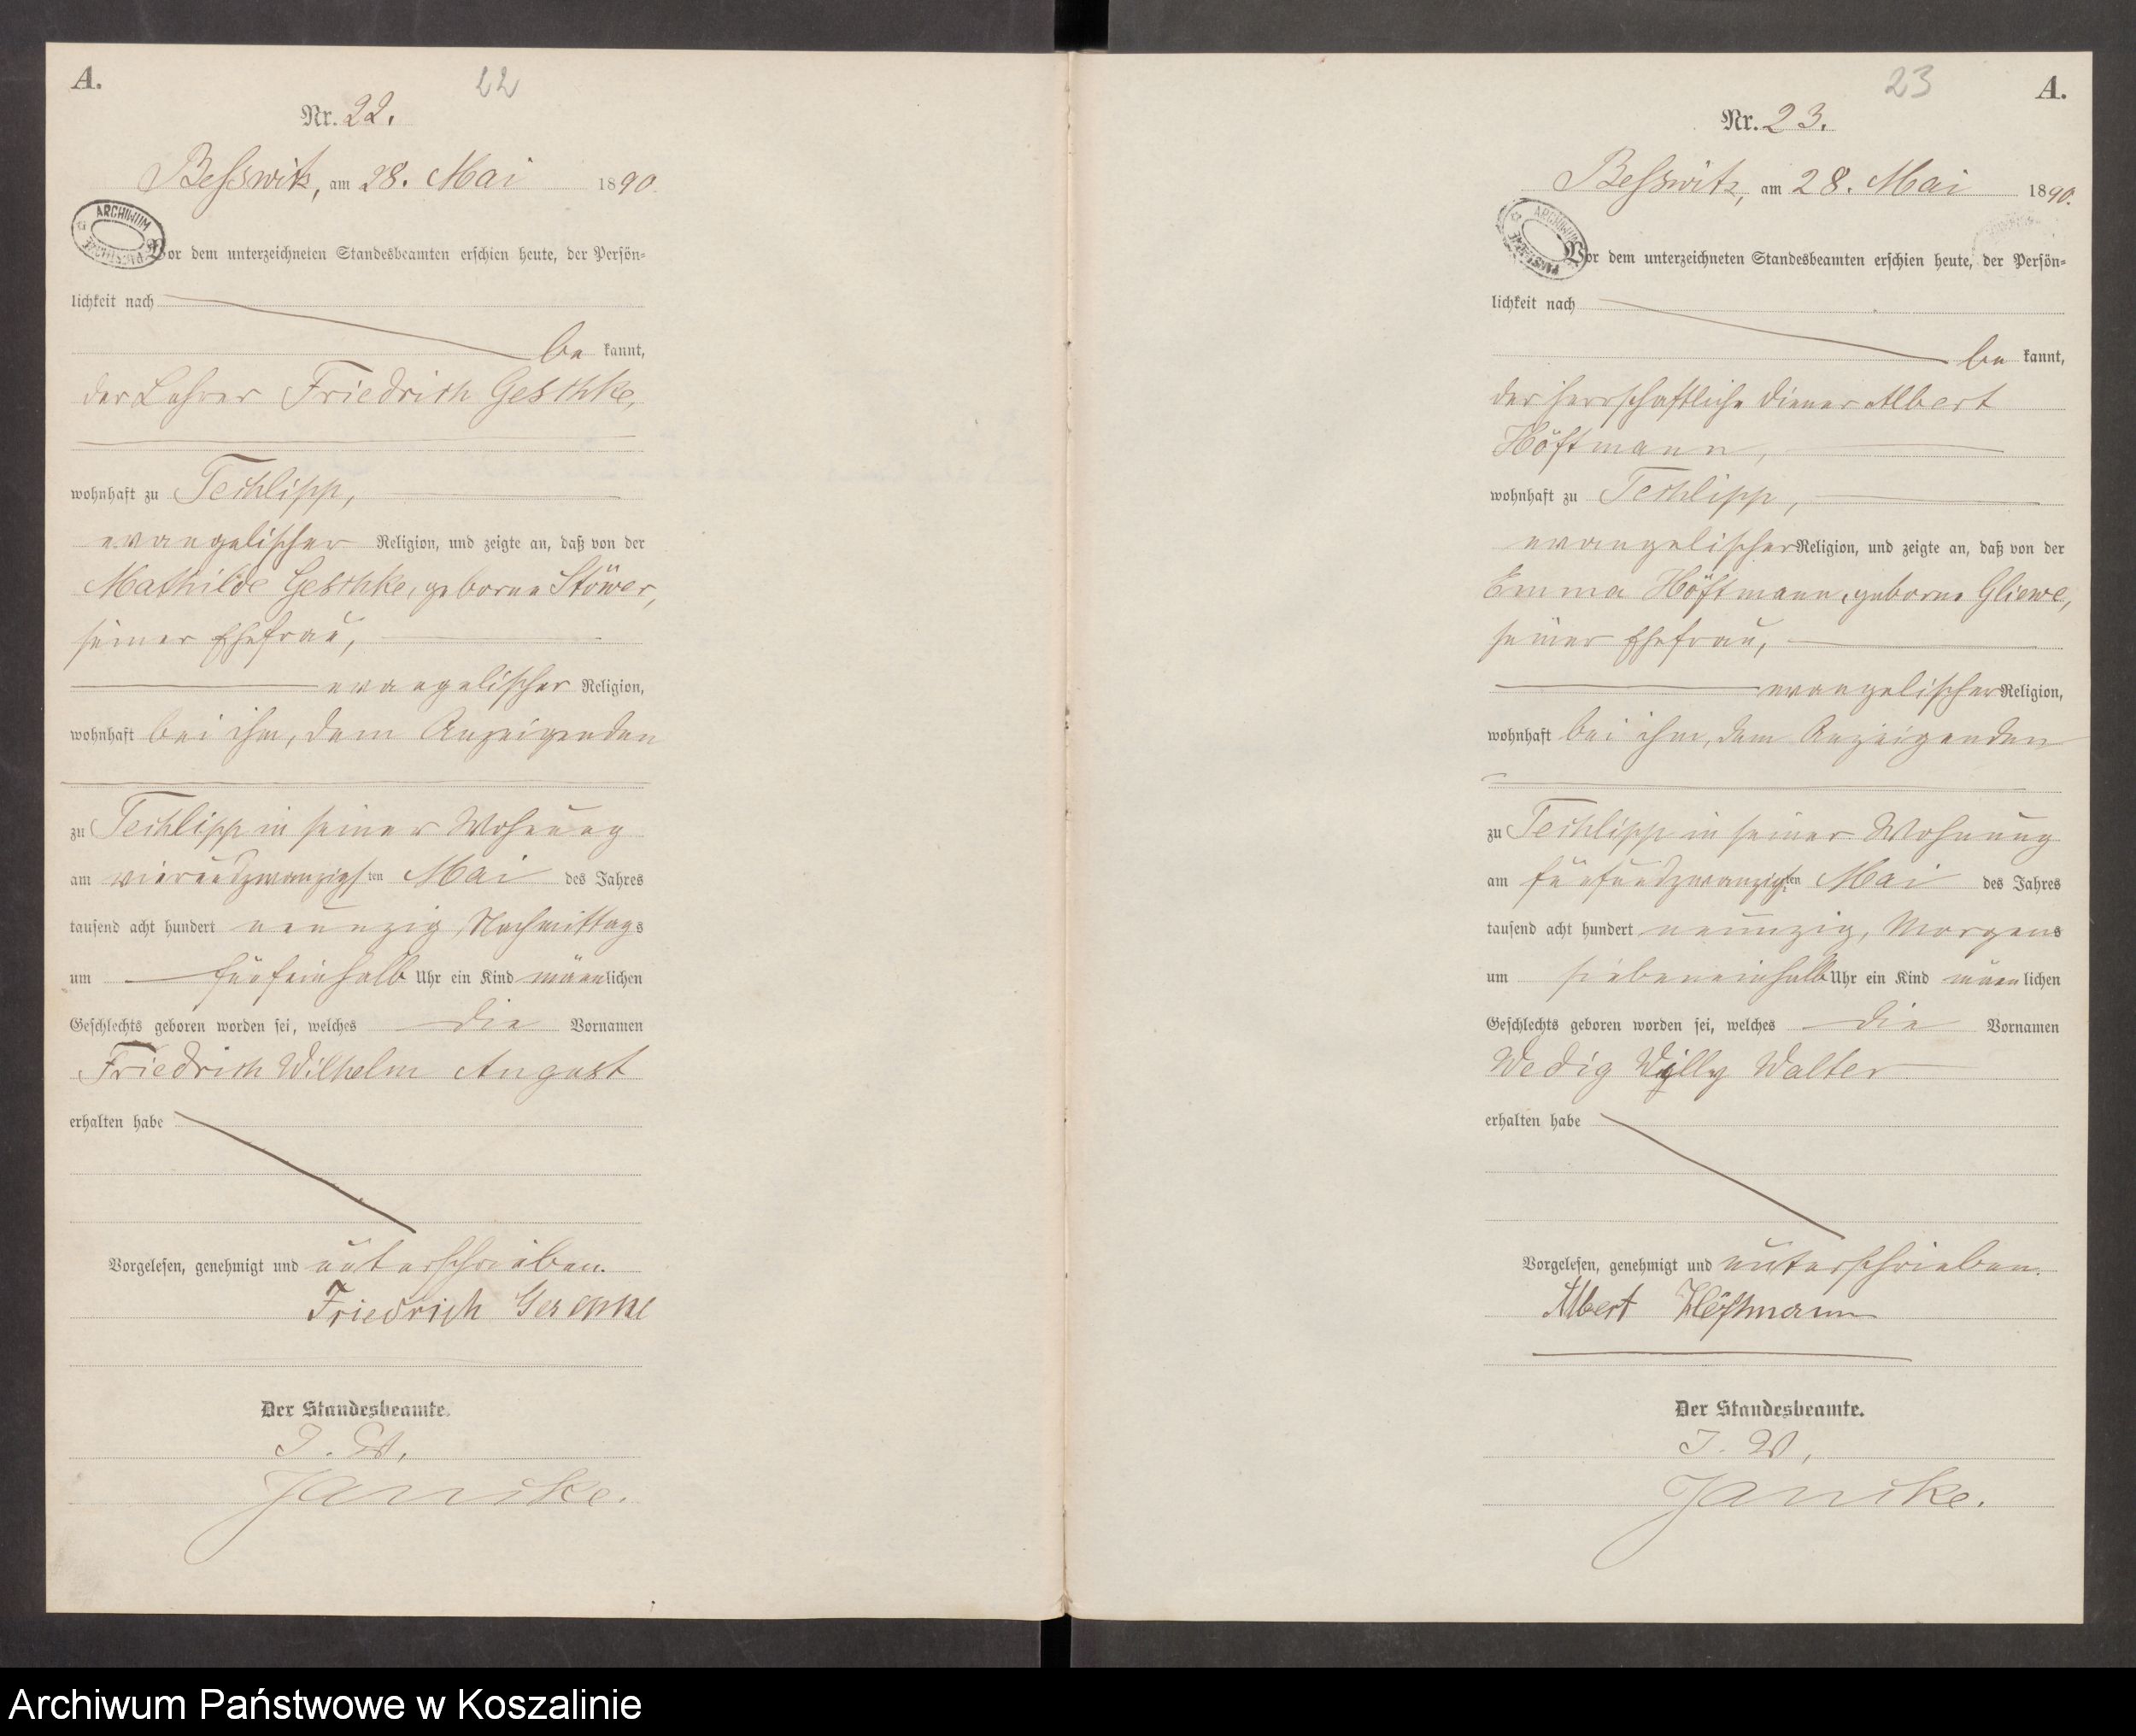 A.
22
Nr. 22.
Besswitz, am 28. Mai 1890.
ARCHIWUM
Vor dem unterzeichneten Standesbeamten erschien heute, der Persön=
lichkeit nach
be kannt,
der Lehrer Friedrich Geschke,
wohnhaft zu Techlipp,
evangelischer Religion, und zeigte an, daß von der
Mathilde Geschke, geborne Stöwer,
seiner Ehefrau,
evangelischer Religion,
wohnhaft bei ihm, dem Anzeigenden
zu Techlipp in seiner Wohnung
am vierundzwanzigsten Mai des Jahres
tausend acht hundert neunzig, Nachmittags
um fünfeinhalb Uhr ein Kind männlichen
Geschlechts geboren worden sei, welches die Vornamen
Friedrich Wilhelm August
erhalten habe
Vorgelesen, genehmigt und unterschrieben.
Friedrich Geschke
Der Standesbeamte.
I. V.
Jancke.
23
A.
Nr. 23.
Besswitz, am 28. Mai 1890.
ARCHIWUM
Vor dem unterzeichneten Standesbeamten erschien heute, der Persön=
lichkeit nach
be kannt,
der herrschaftliche Diener Albert
Höftmann,
wohnhaft zu Techlipp,
evangelischer Religion, und zeigte an, daß von der
Emma Höftmann, geborne Gliewe,
seiner Ehefrau,
evangelischer Religion,
wohnhaft bei ihm, dem Anzeigenden
zu Techlipp in seiner Wohnung
am fünfundzwanzigsten Mai des Jahres
tausend acht hundert neunzig, Morgens
um siebeneinhalb Uhr ein Kind männlichen
Geschlechts geboren worden sei, welches die Vornamen
Wedig Willy Walter
erhalten habe
Vorgelesen, genehmigt und unterschrieben.
Albert Höftmann
Der Standesbeamte.
I. V.
Jancke.
Archiwum Państwowe w Koszalinie